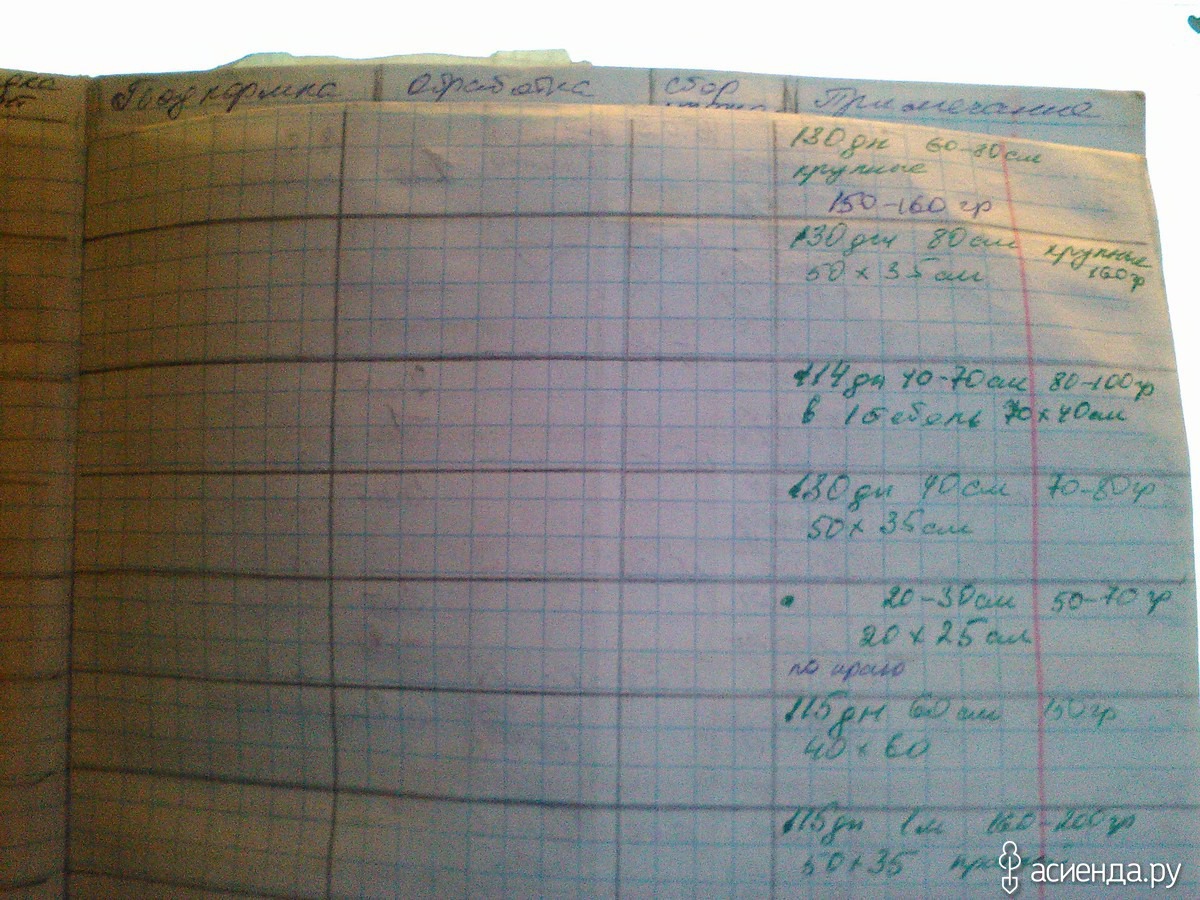 Подкормка Обработка сбор Примечание
130дн 60-80см
крупные
150-160гр
130дн 80см крупные
50×35см 160гр
114дн 40-70см 80-100гр
в 1 стебель 70×40см
130дн 40см 70-80гр
50×35см
20-30см 50-70гр
20×25см
по краю
115дн 60см 150гр
40×60
115дн 1м 160-200гр
50×35
асиенда.ру